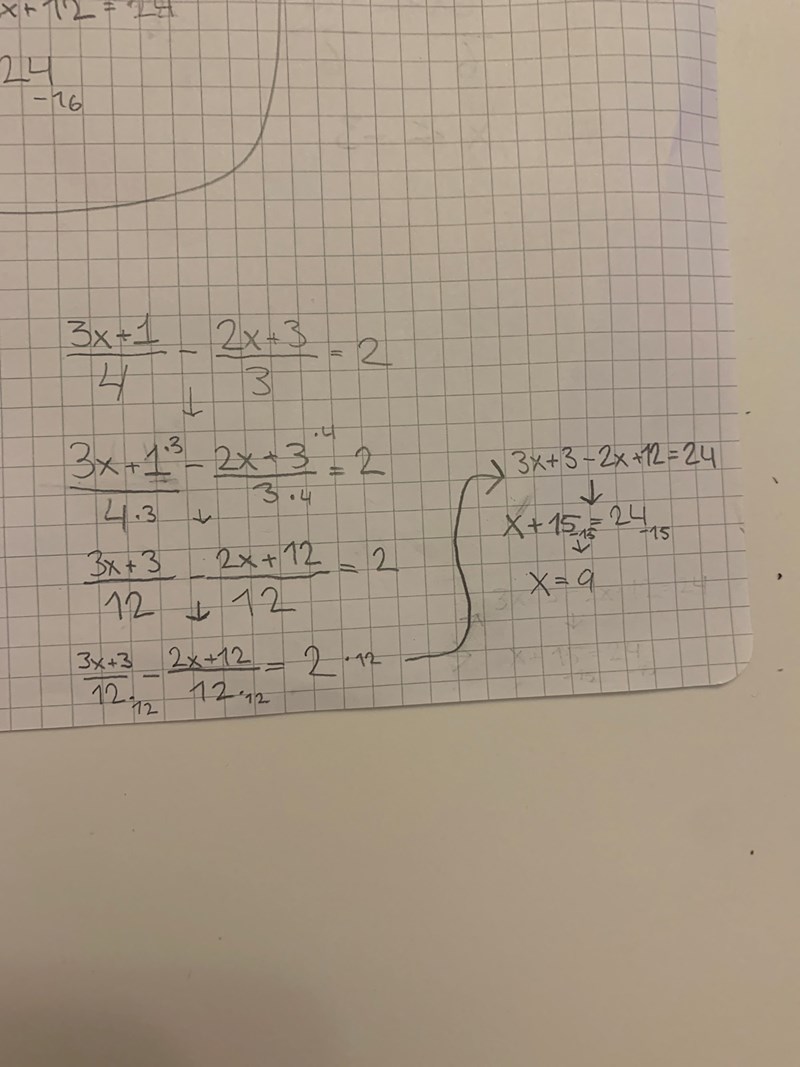 x+12=24
24
-16
(3x+1)/4 - (2x+3)/3 = 2
↓
(3x+1·3)/(4·3) - (2x+3·4)/(3·4) = 2
↓
(3x+3)/12 - (2x+12)/12 = 2
↓
(3x+3)/(12·12) - (2x+12)/(12·12) = 2·12
→ 3x+3-2x+12=24
↓
x+15-15=24-15
↓
x=9